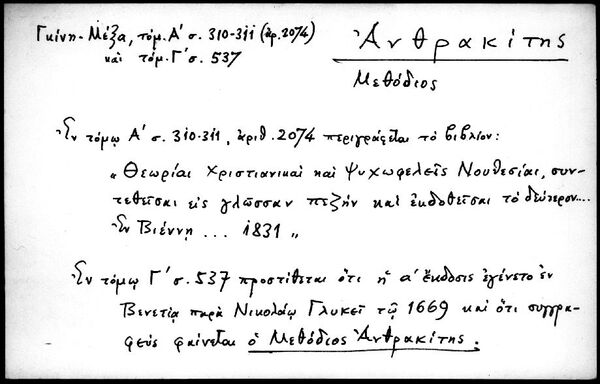 Γκίνη-Μέξα, τόμ. Α΄ σ. 310-311 (ἀρ. 2074)
καὶ τόμ. Γ΄ σ. 537
Ἀνθρακίτης
Μεθόδιος
Ἐν τόμῳ Α΄ σ. 310-311, ἀριθ. 2074 περιγράφεται τὸ βιβλίον:
„ Θεωρίαι χριστιανικαὶ καὶ ψυχωφελεῖς Νουθεσίαι, συν-
τεθεῖσαι εἰς γλῶσσαν πεζὴν καὶ ἐκδοθεῖσαι τὸ δεύτερον....
Ἐν Βιέννῃ ... 1831 „
Ἐν τόμῳ Γ΄ σ. 537 προστίθεται ὅτι ἡ α΄ ἔκδοσις ἐγένετο ἐν
Βενετίᾳ παρὰ Νικολάῳ Γλυκεῖ τῷ 1669 καὶ ὅτι συγγρα-
φεὺς φαίνεται ὁ Μεθόδιος Ἀνθρακίτης.